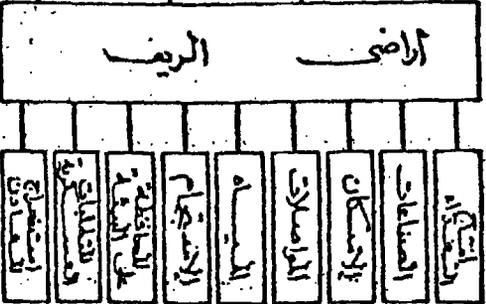 أراضى الريف
إنتاج الغذاء
الصناعات
الإسكان
المواصلات
الميـاه
الإستجمام
المحافظة على البيئة
المتطلبات العسكرية
استخراج المعادن